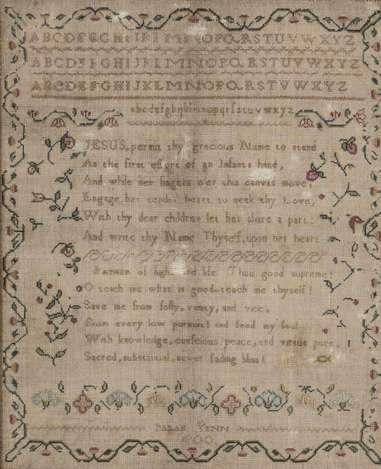 ABCDEFGHIJKLMNOPQRSTUVWXYZ
ABCDEFGHIJKLMNOPQRSTUVWXYZ
ABCDEFGHIJKLMNOPQRSTUVWXYZ
abcdefghijklmnopqrſstuvwxyz
JESUS, permit thy gracious Name to stand
As the first efforts of an Infants hand,
And while her fingers o'er this canvas move,
Engage her tender heart to seek thy Love,
With thy dear children let her share a part,
And write thy Name Thyself, upon her heart
Father of light and life Thou good supreme!
O teach me what is good teach me thyself!
Save me from folly, vanity, and vice,
From every low pursuit! and feed my soul
With knowledge, conscious peace, and virtue pure,
Sacred, substantial, never fading bliss!
SARAH VENN